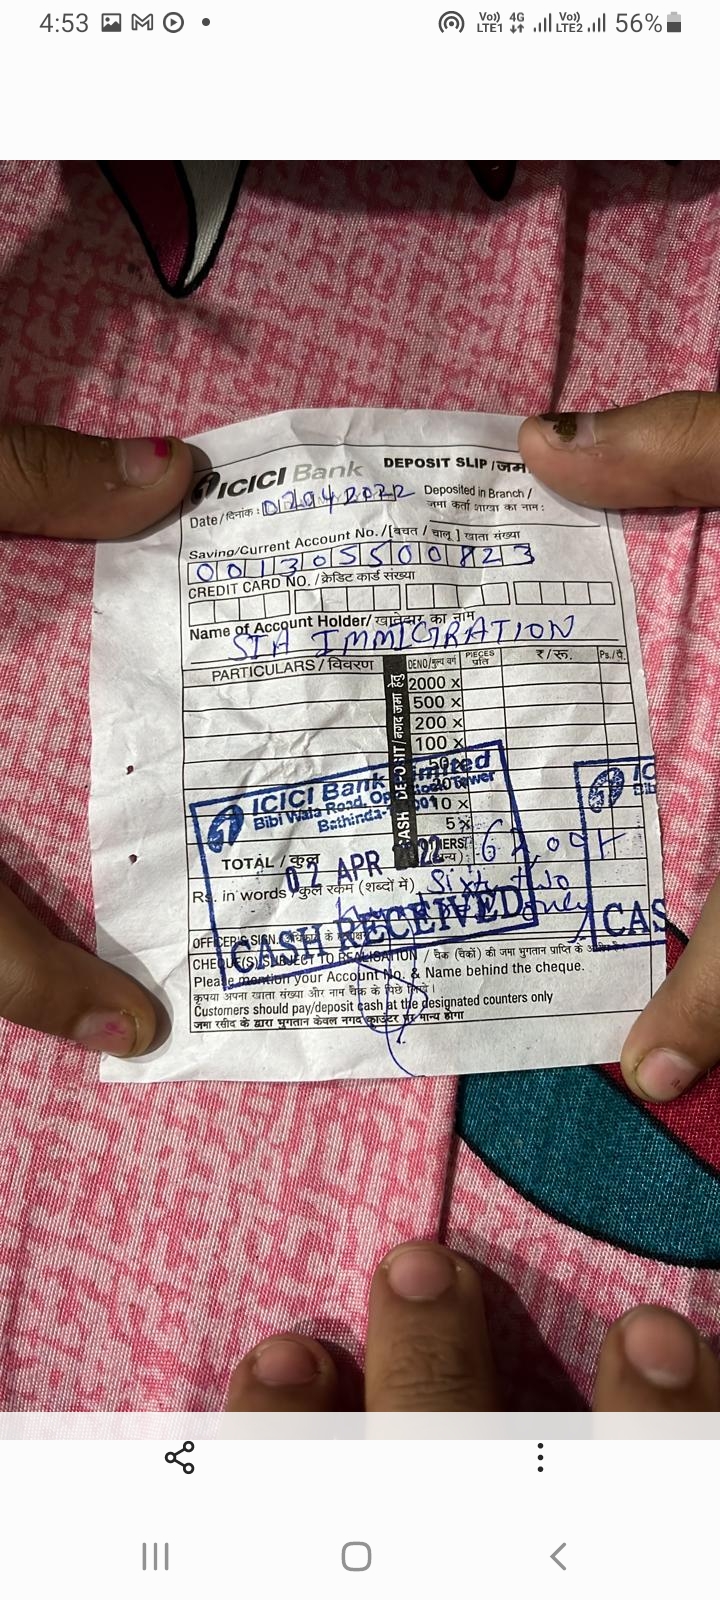 4:53
Vo)) LTE1 4G Vo)) LTE2 56%
ICICI Bank DEPOSIT SLIP / जमा
Date / दिनांक : 02042022 Deposited in Branch /
जमा कर्ता शाखा का नाम :
Saving/Current Account No. / [बचत / चालू] खाता संख्या
001305500823
CREDIT CARD NO. / क्रेडिट कार्ड संख्या
Name of Account Holder/ खातेदार का नाम
STA IMMIGRATION
PARTICULARS / विवरण DENO/मुल्य वर्ग PIECES प्रति ₹/रू. Ps./पै.
CASH DEPOSIT / नगद जमा हेतु
2000 x
500 x
200 x
100 x
50 x
20
10 x
5 x
ICICI Bank Limited
Bibi Wala Road, Tower
Bathinda-
02 APR 2022
CASH RECEIVED
IC
Bib
CAS
TOTAL / कुल
Rs. in words / कुल रकम (शब्दों में) Sixty two
only
OFFICER'S SIGN.
CHEQUE(S) SUBJECT TO REALISATION / चैक (चैकों) की जमा भुगतान प्राप्ति के
Please mention your Account No. & Name behind the cheque.
कृपया अपना खाता संख्या और नाम चैक के पिछे लिखे।
Customers should pay/deposit cash at the designated counters only
जमा रसीद के द्वारा भुगतान केवल नगद काऊंटर पर मान्य होगा